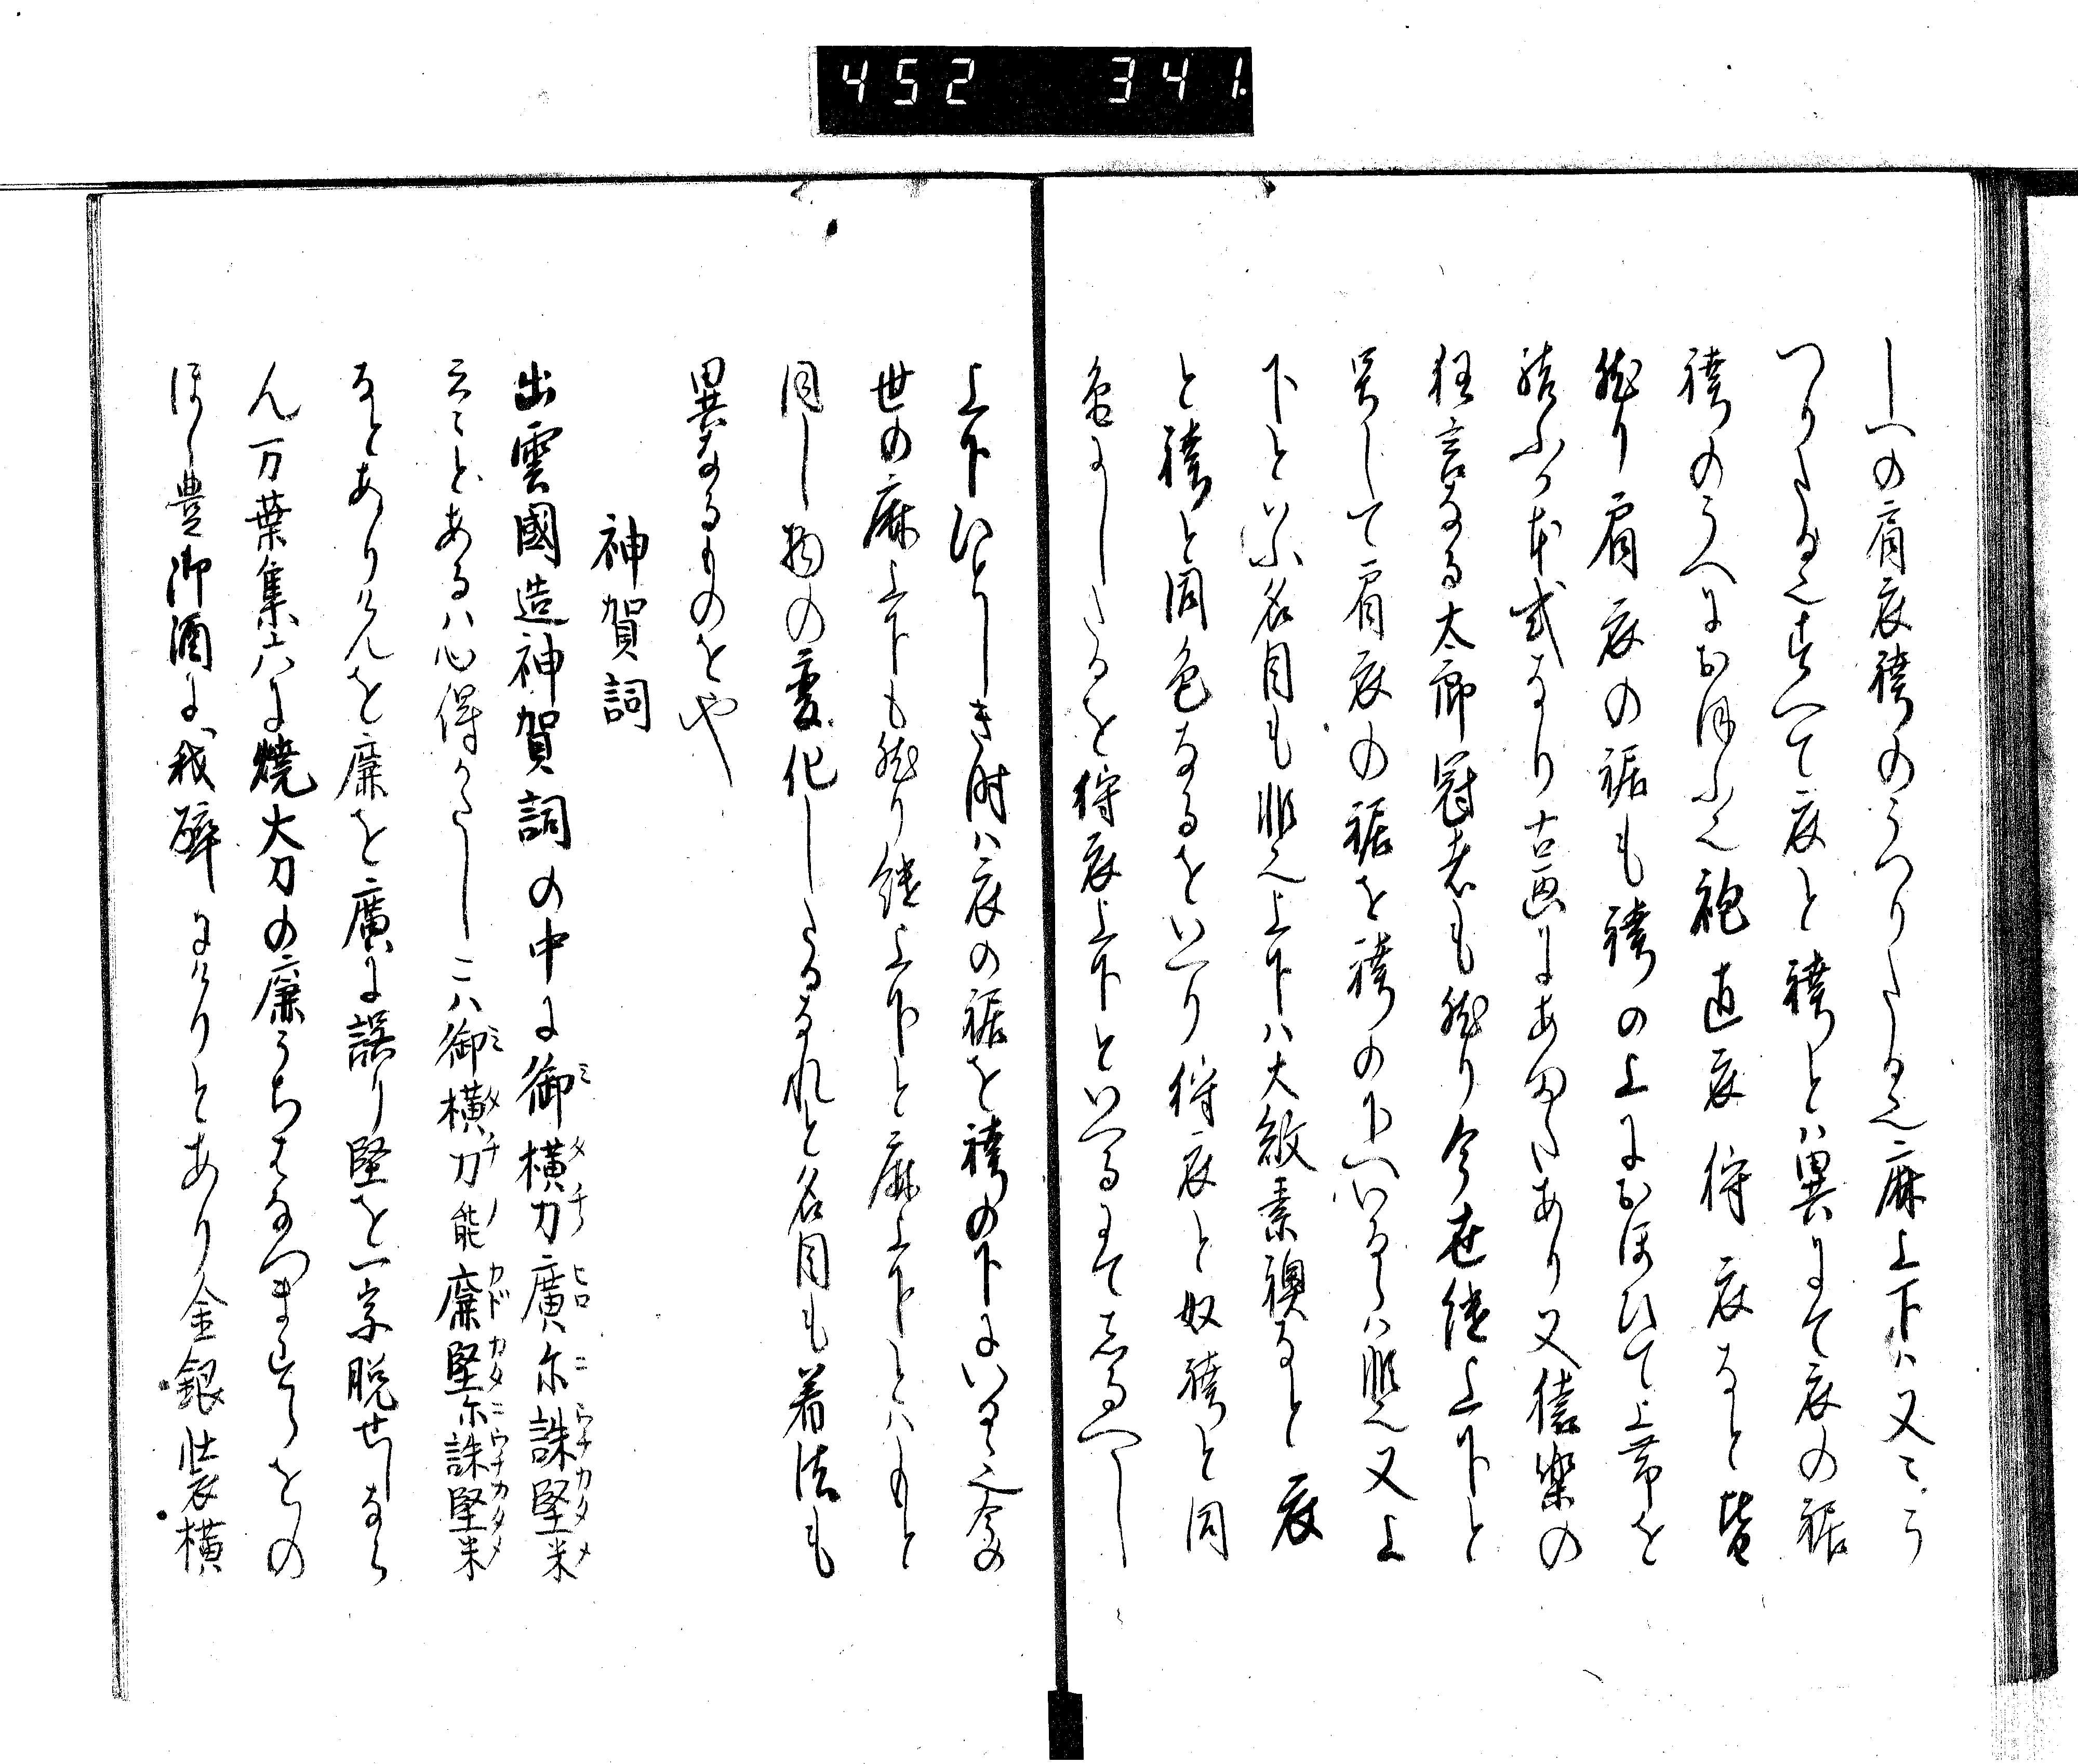 452 341.
しへの肩衣袴のうつりたる也麻上下ハ又こう
つりたる也すへて衣と袴とハ異にて衣の裾
袴のうへにおほふ也袍直衣狩衣なと皆
然り肩衣の裾も袴の上におほひて上帯を
結ふか本式なり古画にあまたあり又猿楽の
狂言なる太郎冠者も然り今世継上下と
号して肩衣の裾を袴の下へいるゝハ非也又上
下といふ名目も非也上下ハ大紋素襖なと衣
と袴と同色なるをいへり狩衣と奴袴と同
色にしたるを狩衣上下といへるにてしるへし
上下ひとしき時ハ衣の裾を袴の下にいるゝ也今の
世の麻上下も然り継上下と麻上下とハもと
同し物の変化したるなれと名目も着法も
異なるものをや
神賀詞
出雲國造神賀詞の中に御横刀廣尓誅堅米
云々とあるハ心得かたしこハ御横刀能廉堅尓誅堅米
なとありけんを廉を廣に誤り堅を一字脱せしなら
ん万葉集六に焼大刀の廉うちはなつますらをの
ほく豊御酒に我酔にけりとあり金銀装横